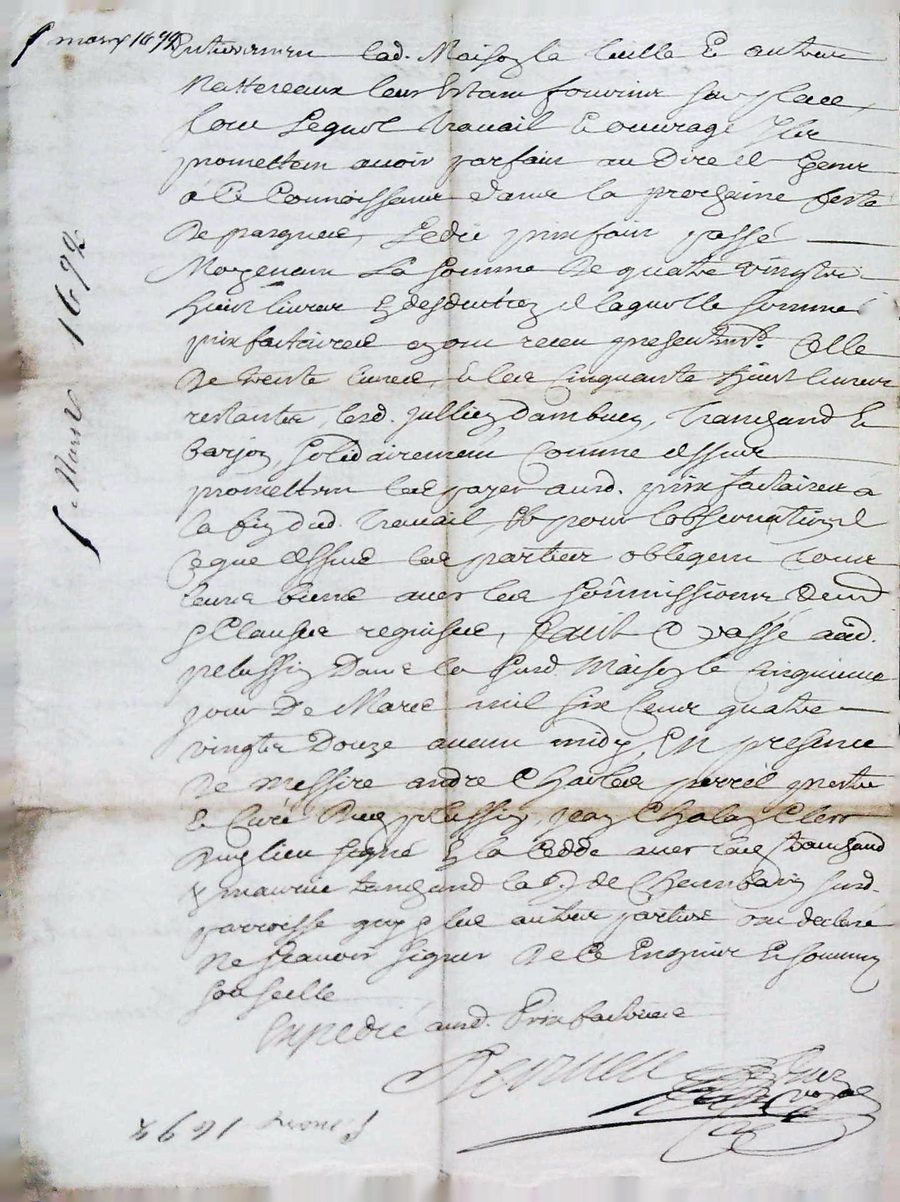 5 mars 1692
lad. Maison la tuille & autres
mattereaux leur estant fournis sur place
pour Lequel travail & ouvrage Ils
promettent avoir parfait au dire de gens
à ce Connoissans dans la prochaine feste
de pasques, Ledit prix fait passé
Moyenant La somme de quatre vingts
huit livres de laquelle somme
prixfacteurs ont receu presentemt. Celle
de trente livres, & les cinquante huit livres
restantes, lesd. jullien dambuen, tranchand &
barjon, solidairement comme dessus
promettent les payer ausd. prixfacteurs a
la fin dud. travail, Et pour l'observation de
ce que dessus les parties obligent tous
leurs biens avec les soûmissions
& Clauses requises, fait & passé aud.
pelussin dans la susd. Maison le cinquieme
jour De Mars mil six Cens quatre
vingts Douze avant midy, En presence
de messire andré Charles perril prestre
& Curé dud pelussin, jean Chalay Clerc
dud lieu signé a la Cedde avec led tranchand
& maurice tranchand la de Chambarin susd.
parroisse les autres parties ont declaré
ne sçavoir signer de ce Enquis & sommés
soubselle
Expedié ausd. Prixfacteurs
5 Mars 1692
5 mars 1692